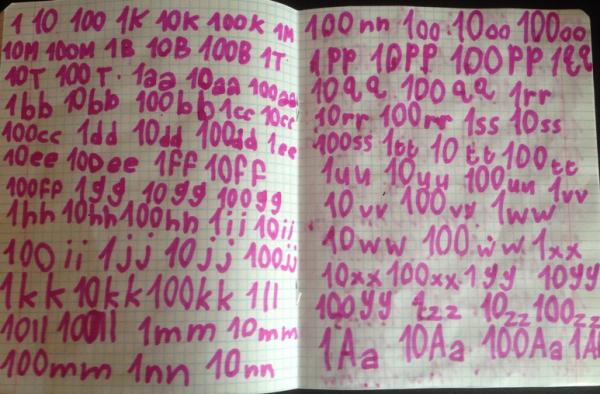 1 10 100 1K 10K 100K 1M
10M 100M 1B 10B 100B 1T
10T 100T. 1aa 10aa 100aa
1bb 10bb 100bb 1cc 10cc
100cc 1dd 10dd 100dd 1ee
10ee 100ee 1ff 10ff
100ff 1gg 10gg 100gg
1hh 10hh 100hh 1ii 10ii
100ii 1jj 10jj 100jj
1kk 10kk 100kk 1ll
10ll 100ll 1mm 10mm
100mm 1nn 10nn
100nn 1oo 10oo 100oo
1pp 10pp 100pp 1qq
10qq 100qq 1rr
10rr 100rr 1ss 10ss
100ss 1tt 10tt 100tt
1uu 10uu 100uu 1vv
10vv 100vv 1ww
10ww 100ww 1xx
10xx 100xx 1yy 10yy
100yy 1zz 10zz 100zz
1Aa 10Aa 100Aa